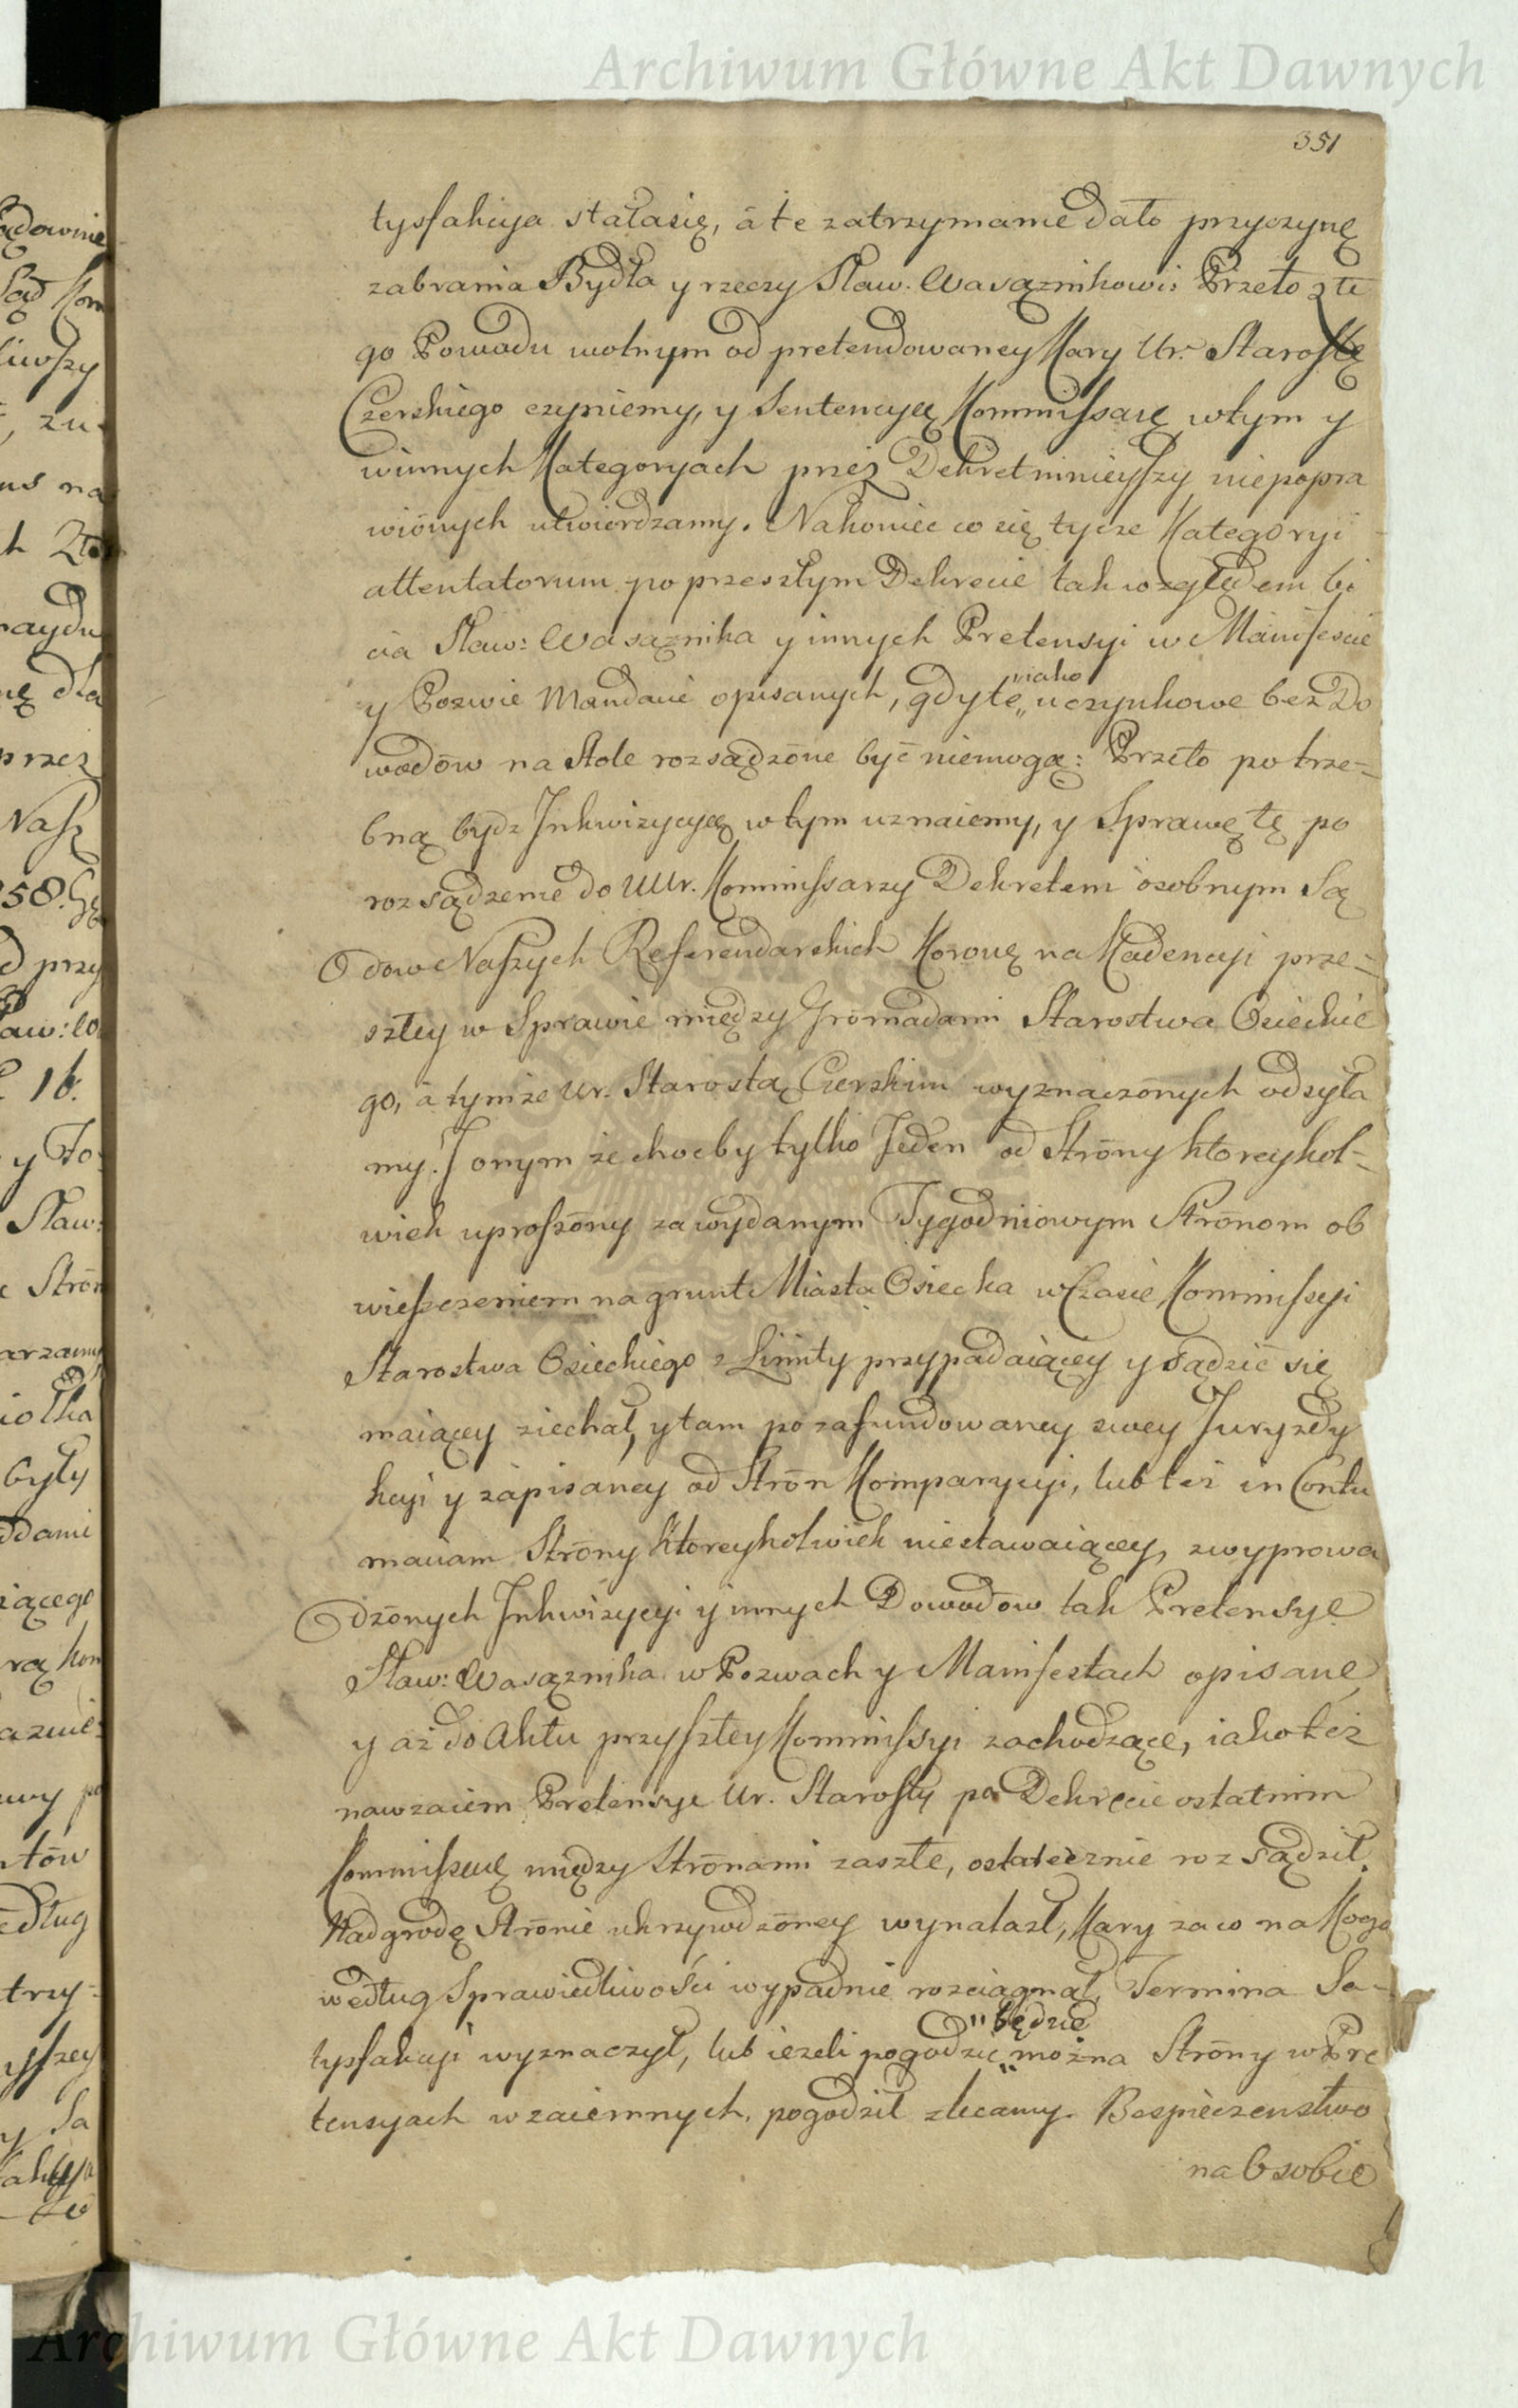 Archiwum Główne Akt Dawnych
351
tysfakcya stałasię, á te zatrzymanie dało przyczynę
zabrania Bydła y rzeczy Sław. Wasąznikowi; Przeto z te
go Powodu wolnym od pretendowaney Kary Ur. Starostę
Czerskiego czyniemy, y Sentencyą Kommissarę wtym y
winnych Kategoryach przez Dekret ninieyszy niepopra
wiōnych utwierdzamy. Nakoniec co się tycze Kategoryi
attentatorum po przeszłym Dekrecie tak względem bi
cia Sław: Wasąznika y innych Pretensyi w Manifescie
y Pozwie Mandacie opisanych, gdyte „iako uczynkowe bez Do
wodōw na Stole rozsądzōne być niemogą: Przeto potrze=
bną bydz Inkwizycyą wtym uznaiemy, y Sprawę tę po
rozsądzenie do UUr. Kommissarzy Dekretem osobnym Są
dow Naszych Referendarskich Koronę na Kadencyi prze=
szłey w Sprawie między Gromadami Starostwa Osieckie
go, á tymże Ur. Starostą Czerskim wyznaczōnych odsyła
my. I onym że choćby tylko Jeden od Strōny ktoreykol=
wiek uproszōny za wydanym Tygodniowym Strōnom ob
wieszczeniem na grunt Miasta Osiecka w Czasie Kommissyi
Starostwa Osieckiego z Limity przypadaiącey y sądzić się
maiącey ziechał, y tam po zafundowaney swey Juryzdy
kcyi y zapisaney od Strōn Komparycyi, lub też in Contu
maciam Strōny ktoreykolwiek niestawaiącey, zwyprowa
dzōnych Inkwizycyi y innych Dowodōw tak Pretensye
Sław: Wasąznika w Pozwach y Manifestach opisane
y aż do Aktu przyszłey Kommissyi zachodzące, iako też
nawzaiem Pretensye Ur. Starosty po Dekrecie ostatnim
Kommissuię między Strōnami zaszłe, ostatecznie rozsądził,
Nadgrodę Strōnie ukrzywdzōney wynalazł, Kary za co na Kogo
według Sprawiedliwości wypadnie rozciągnął, Termina Sa=
tysfakcyi wyznaczył, lub ieżeli pogodzić „będzie można Strōny w Pre
tensyach wzaiemnych, pogodził zlecamy. Bespieczenstwo
na Osobie
Archiwum Główne Akt Dawnych